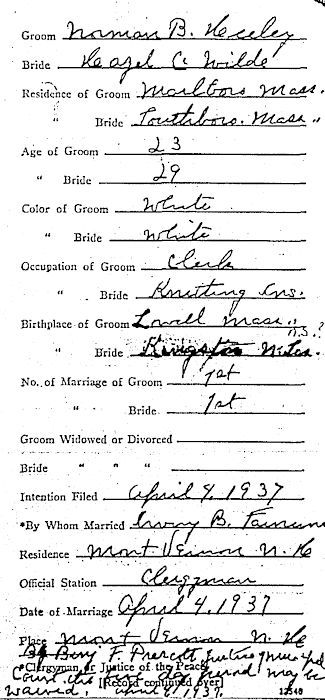 Groom Norman B. Keeley
Bride Hazel C Wilde
Residence of Groom Marlboro Mass.
" Bride Southboro. Mass.
Age of Groom 23
" Bride 29
Color of Groom White
" Bride White
Occupation of Groom Clerk
" Bride Knitting Ins.
Birthplace of Groom Lowell Mass.
N.S.?
" Bride Kingston
No. of Marriage of Groom 1st
" Bride 1st
Groom Widowed or Divorced
Bride " " "
Intention Filed April 4, 1937
*By Whom Married B.
Residence Mont Vernon N. H
Official Station Clergyman
Date of Marriage April 4, 1937
Place Mont Vernon N. H
By Benj F. Prescott Justice
*Clergyman or Justice of the Peace
Court the may be
[Record continued over]
waived. April 4, 1937.
12540